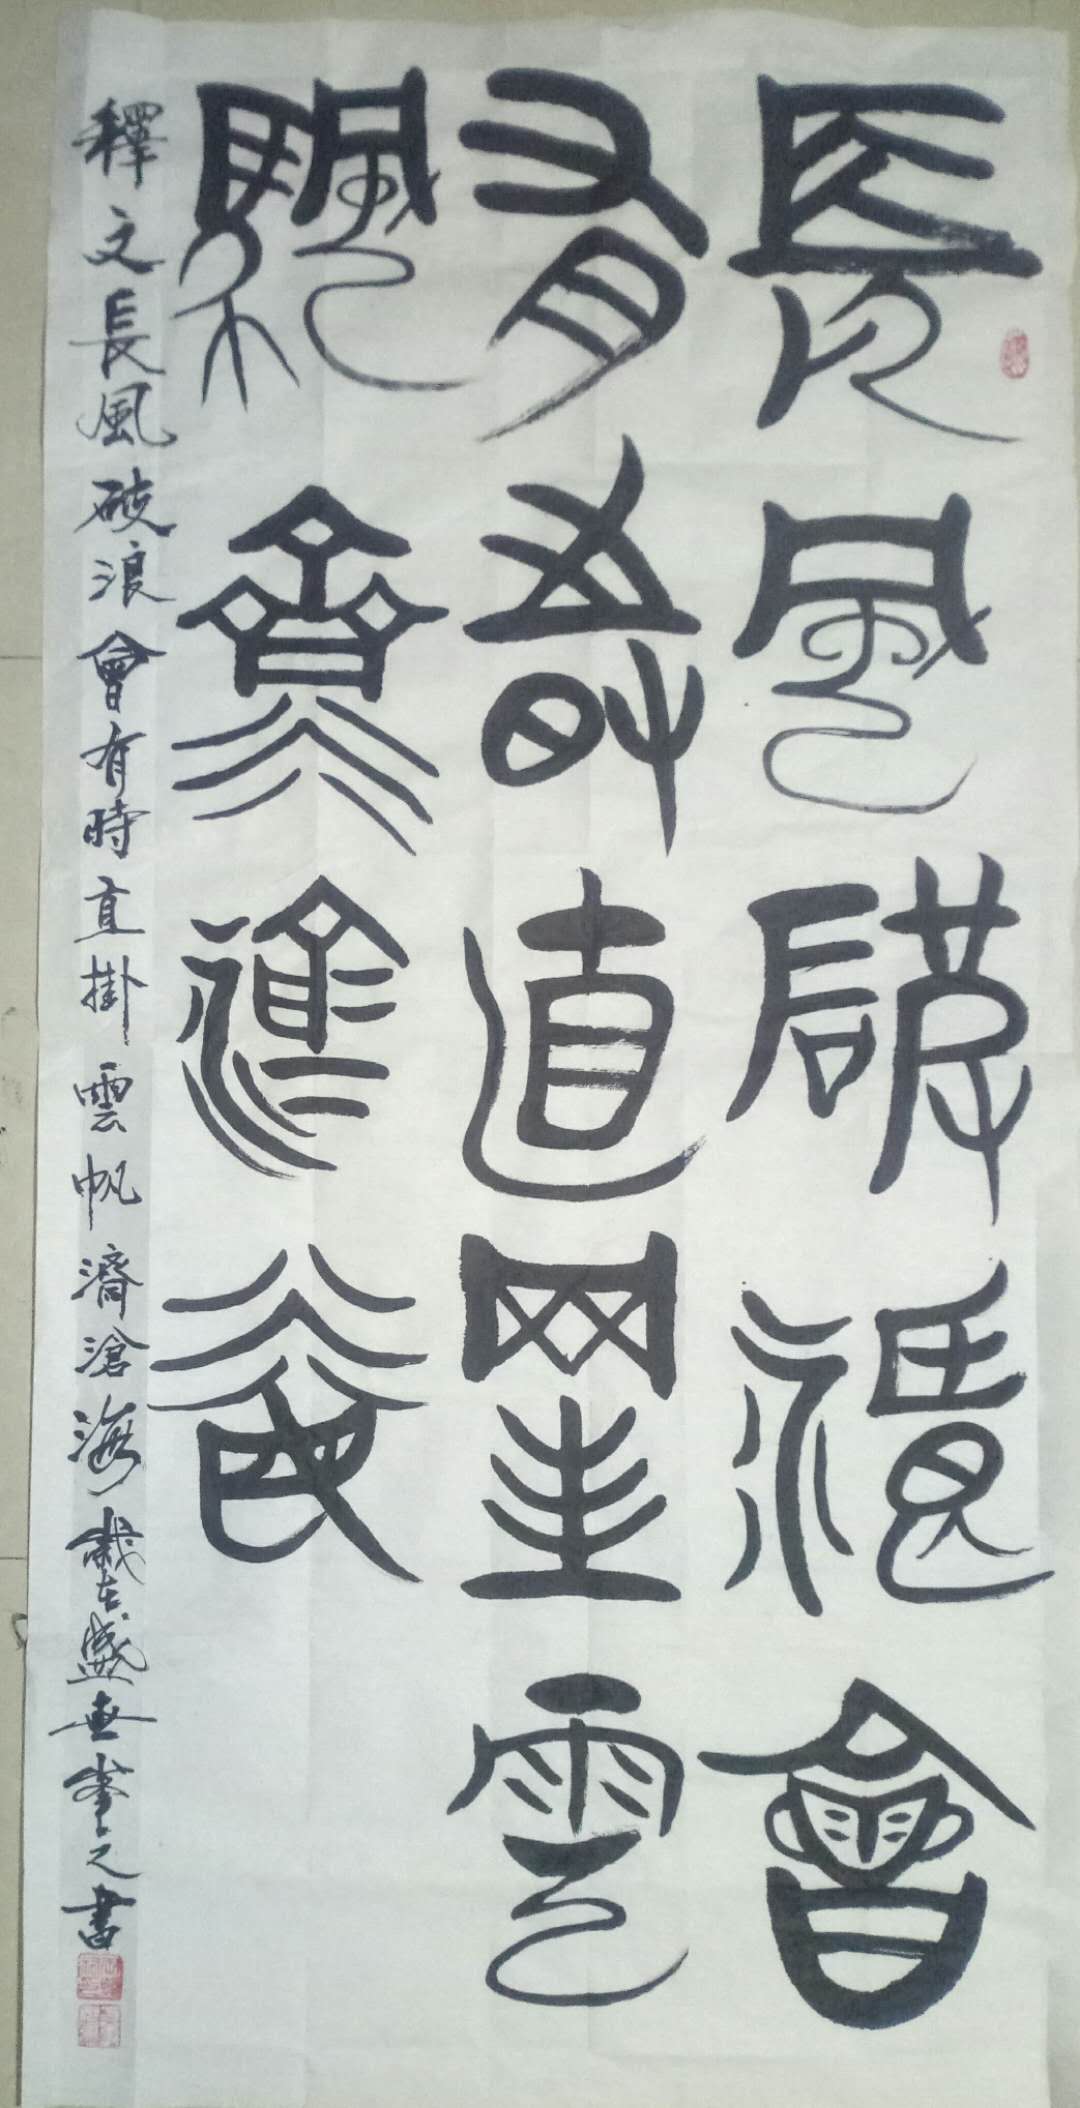 長風破浪會
有時直掛雲
颿齊進海
釋文長風破浪會有時直掛雲帆濟滄海 歲在盛無書